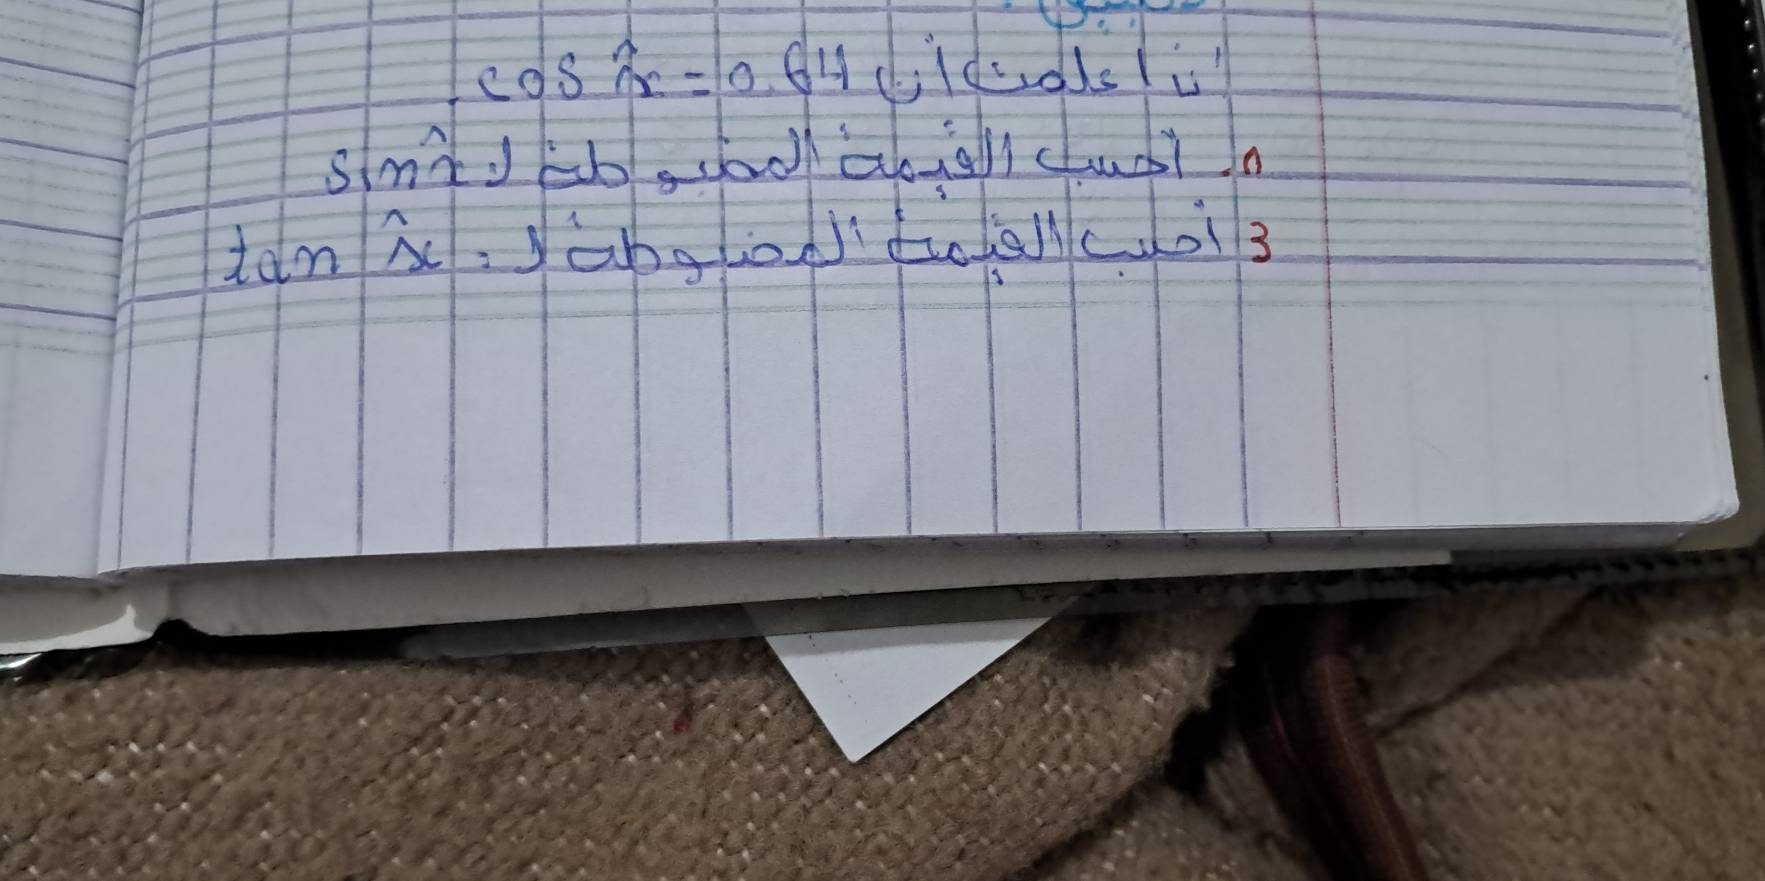 إذا علمت أن cos x̂ = 0.64
1. احسب القيمة المضبوطة لـ sin x̂
3 احسب القيمة المضبوطة لـ: tan x̂